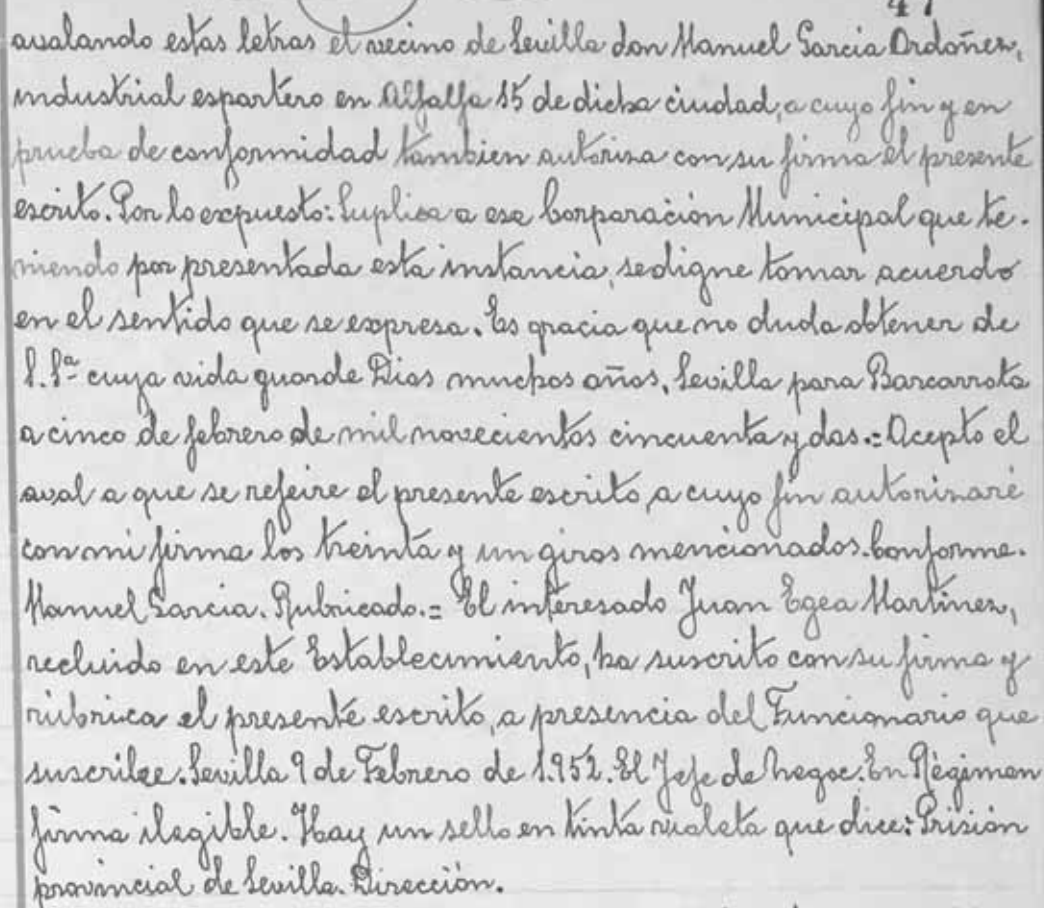 47
avalando estas letras el vecino de Sevilla don Manuel Garcia Ordoñez,
industrial espartero en Alfalfa 15 de dicha ciudad, a cuyo fin y en
prueba de conformidad tambien autoriza con su firma el presente
escrito. Por lo expuesto: Suplica a esa Corporación Municipal que te-
niendo por presentada esta instancia, se digne tomar acuerdo
en el sentido que se expresa. Es gracia que no duda obtener de
S.Sª cuya vida guarde Dios muchos años. Sevilla para Barcarrota
a cinco de febrero de mil novecientos cincuenta y dos.= Acepto el
aval a que se refeire el presente escrito, a cuyo fin autorizaré
con mi firma los treinta y un giros mencionados. Conforme.
Manuel Garcia. Rubricado.= El interesado Juan Egea Martinez,
recluido en este Establecimiento, ha suscrito con su firma y
rúbrica el presente escrito, a presencia del Funcionario que
suscribe. Sevilla 9 de Febrero de 1.952. El Jefe de negoc. En Règimen
firma ilegible. Hay un sello en tinta violeta que dice: Prisión
provincial de Sevilla. Dirección.